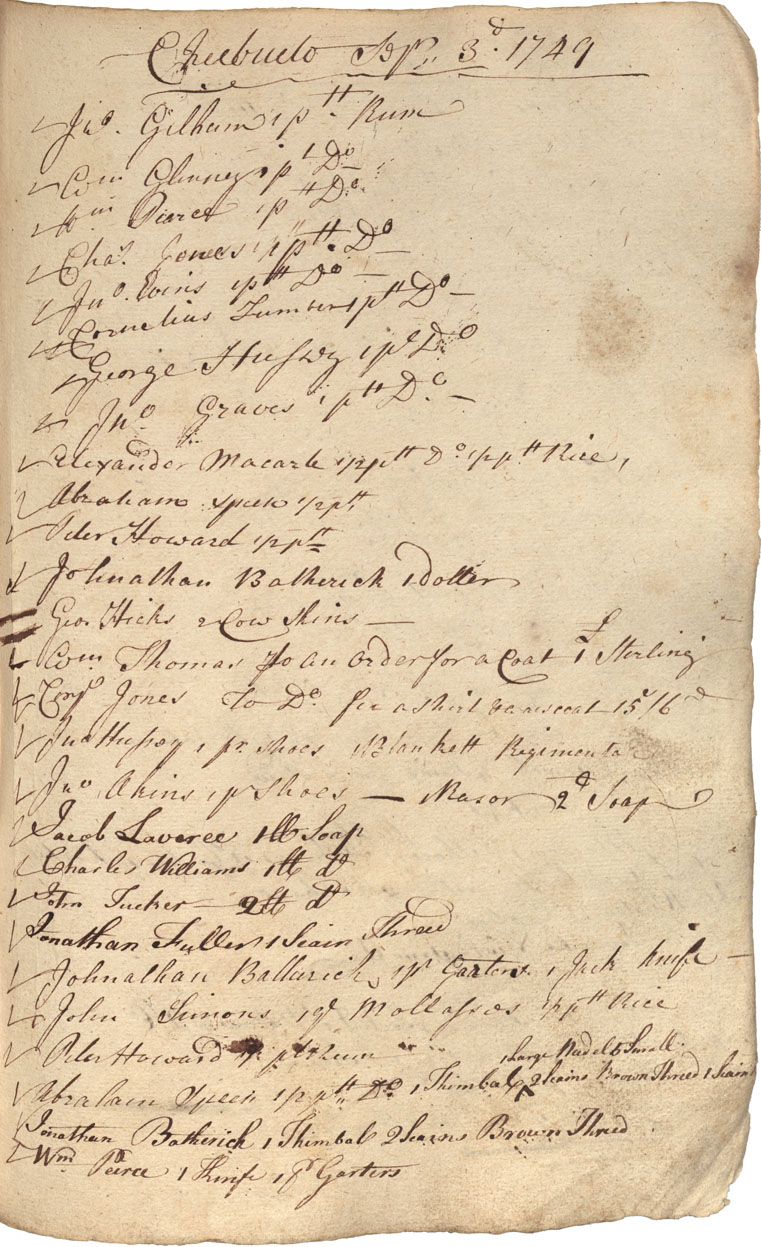 Chebucto Sepr. 3d. 1749
Jno. Gilham 1 ptt. Rum
Wm Glinney 1 pt Do
Wm Pierce 1 ptt Do
Chas. Joness 1/2 ptt. Do
Jno. Evins 1 ptt Do
Cornelius 1 ptt Do
George Hussey 1 pt Do
Jno Graves 1 ptt Do
Alexander Macarte 1/2 ptt Do 1/2 ptt Rice,
Abraham Speen 1/2 ptt
Peter Howard 1/2 ptt
Johnathan Batherick 1 Doller
Geo. Hicks 2 Cow Skins
Wm Thomas To an order for a Coat 1£ Sterling
Jones To Do for a shirt & a 15s/6d
Jno Hussey 1 pr shoes 1 Blankett Regimenta
Jno Akins 1 pr shoes — Mason 2d Soap
Jacob Laveree 1 lb Soap
Charles Williams 1 lb do
John Tucker — 2 lb do
Jonathan Fuller 1 Scain Thred
Johnathan Batherick 1 pr Garters 1 Jack knife
John Simons 1 qt Mollasses 1/2 ptt Rice
Peter Howard 1/2 pt Rum 1 Large Nedel 5 Small
Abraham Speen 1/2 ptt Do 1 Thimbal 2 Scains Brown Thred 1 Scain
Jonathan Batherick 1 Thimbal 2 Scains Brown Thred
Wm Peirce 1 Knife 1 pr Garters